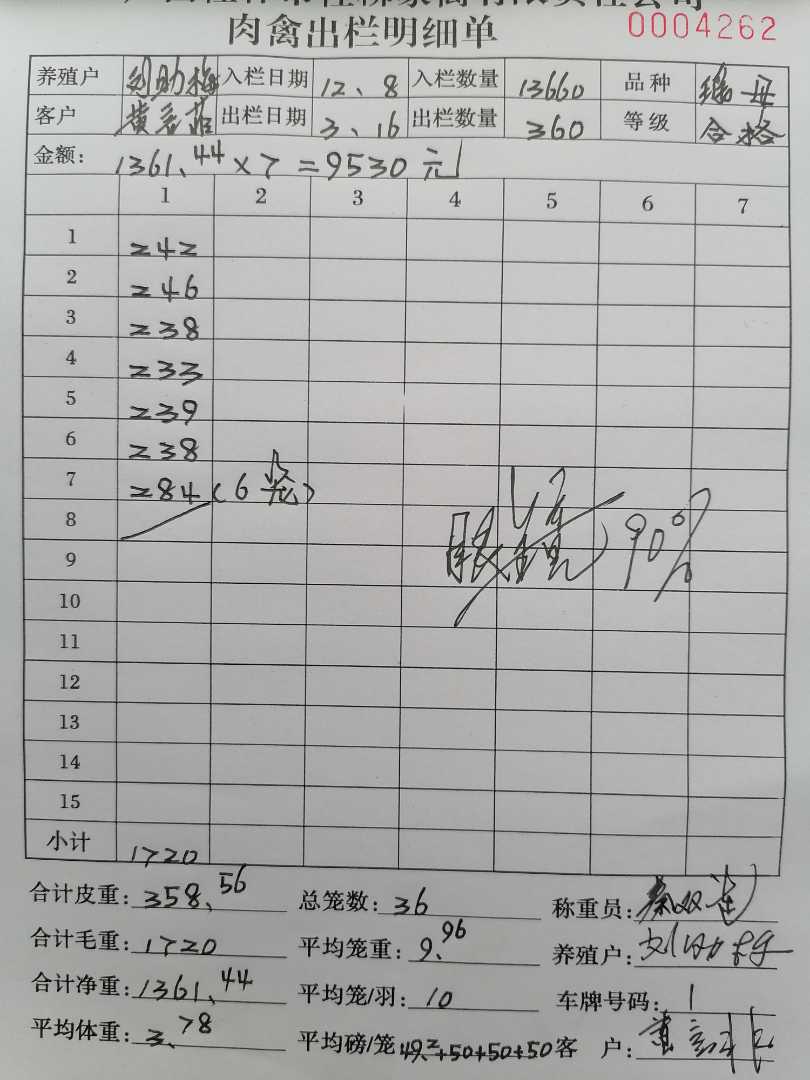 肉禽出栏明细单 0004262
养殖户 刘助梅 入栏日期 12、8 入栏数量 13660 品种
客户 出栏日期 3、16 出栏数量 360 等级 合格
金额: 1361.44×7=9530元
1 2 3 4 5 6 7
1 242
2 246
3 238
4 233
5 239
6 238
7 284(6笼)
8
9 90%
10
11
12
13
14
15
小计 1720
合计皮重: 358.56 总笼数: 36 称重员:
合计毛重: 1720 平均笼重: 9.96 养殖户:
合计净重: 1361.44 平均笼/羽: 10 车牌号码: 1
平均体重: 3.78 平均磅/笼 49.2+50+50+50 客 户: